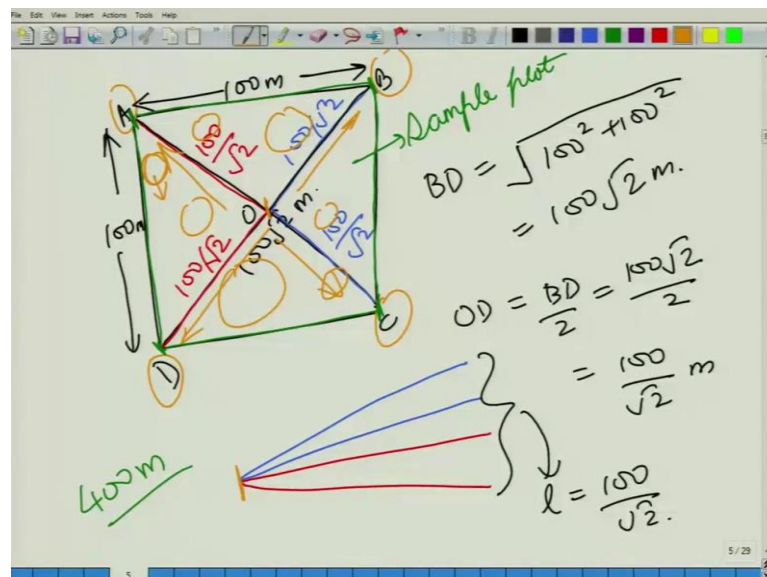 File Edit View Insert Actions Tools Help
B I
100m
A
B
100/√2
100/√2
→ Sample plot
100m
O
100√2 m.
100/√2
100/√2
D
C
BD = √100² + 100²
= 100√2 m.
OD = BD/2 = 100√2/2
= 100/√2 m
400m
l = 100/√2.
5/29
5